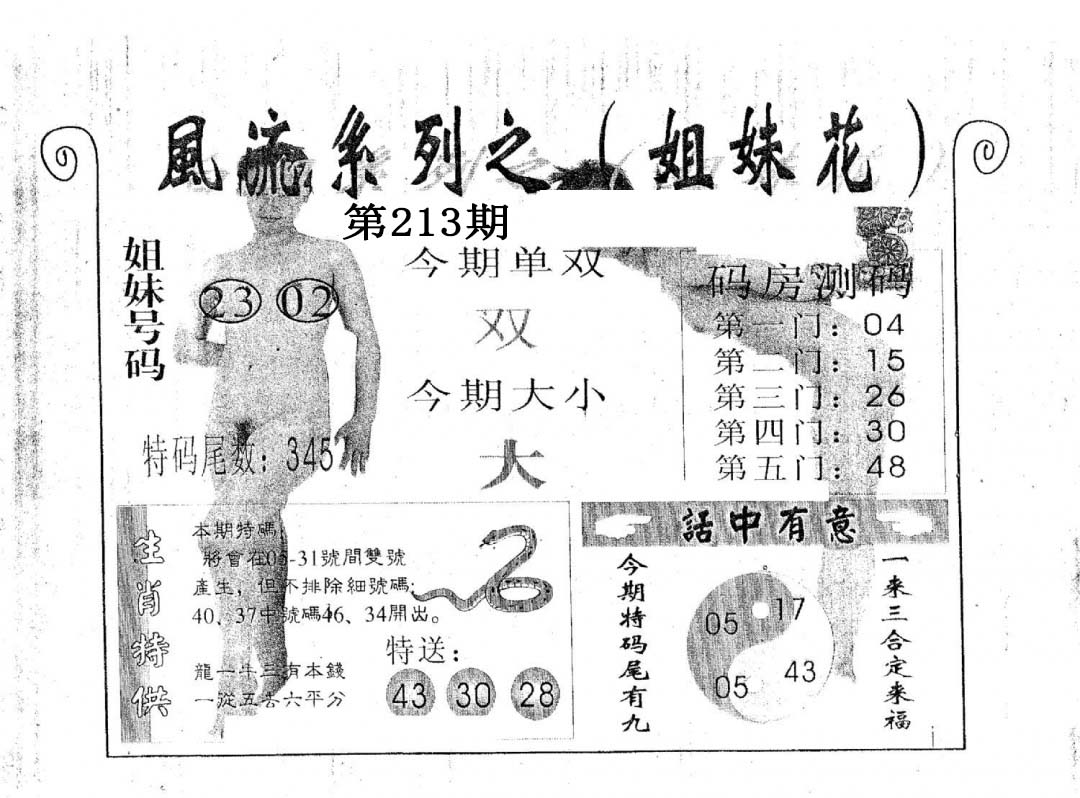 風流系列之（姐妹花）
第213期
姐妹号码
23 02
特码尾数：345
今期单双
双
今期大小
大
码房测码
第一门：04
第二门：15
第三门：26
第四门：30
第五门：48
生肖特供
本期特碼：
將會在05-31號間雙號
產生，但不排除細號碼；
40、37中號碼46、34開出。
龍一牛三有本錢
一從五去六平分
特送：
43 30 28
話中有意
今期特码尾有九
05 17
05 43
一来三合定来福